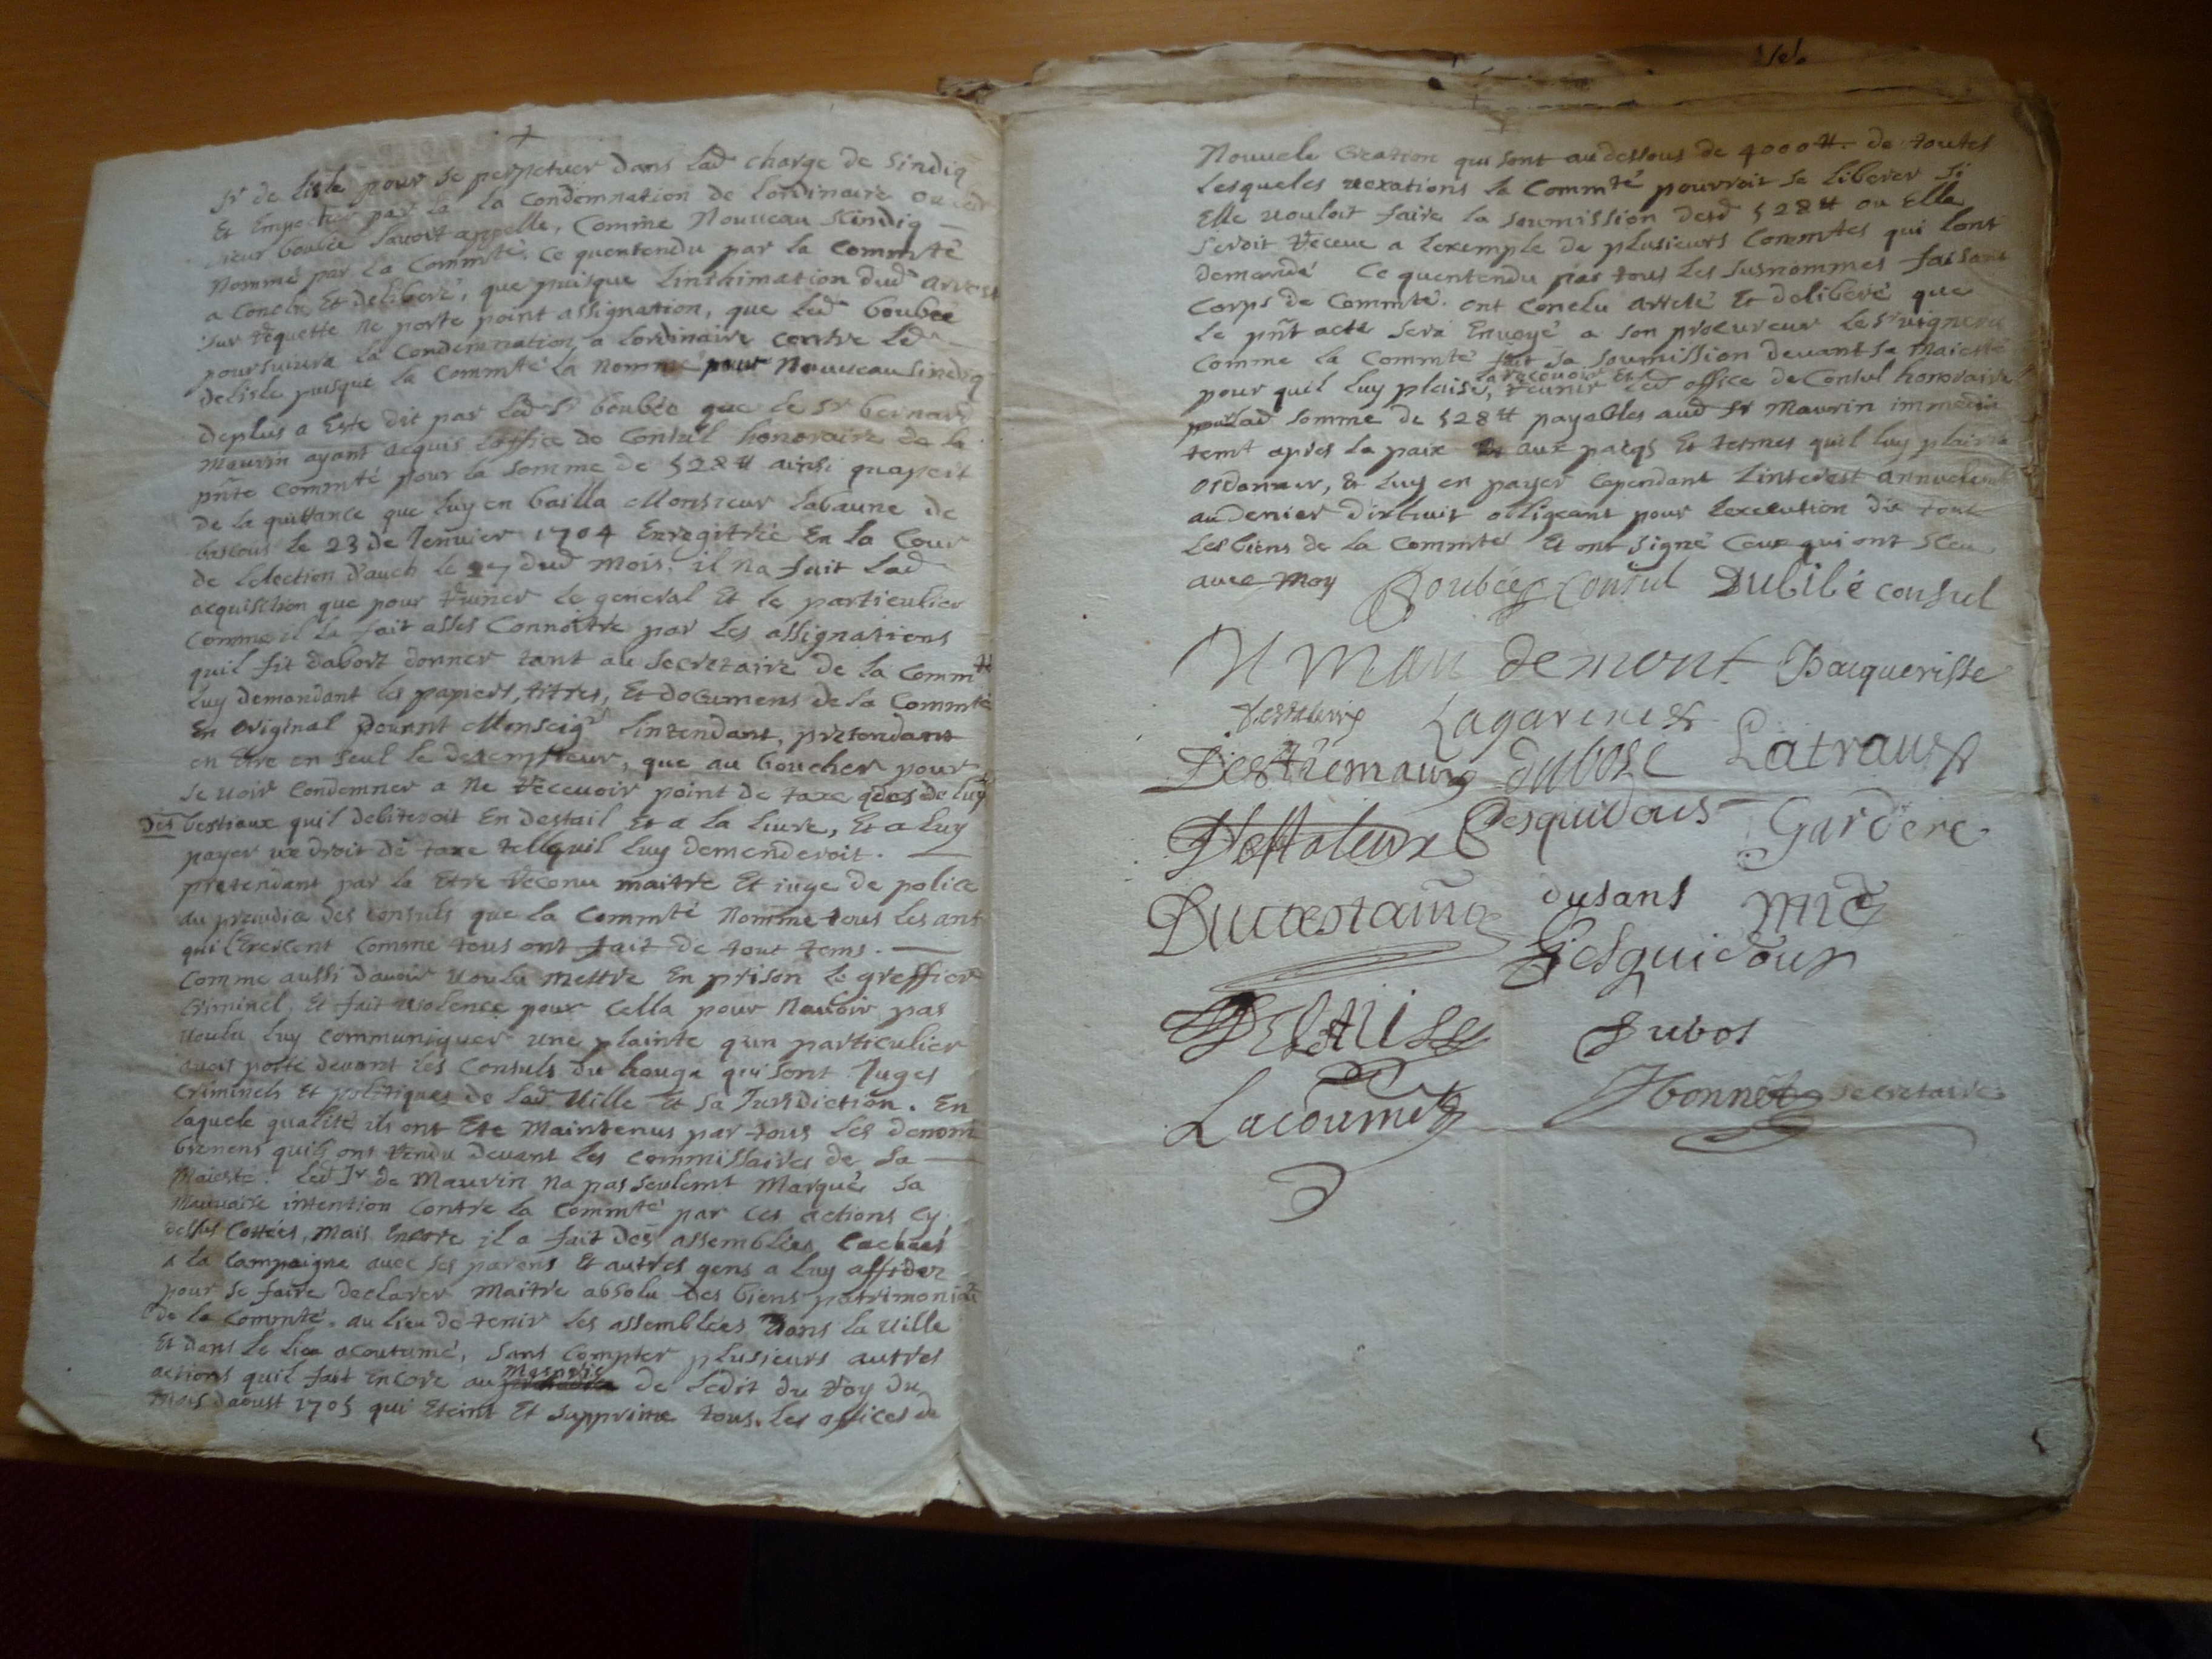 Sr de lisle pour se perpetuer dans lad charge de sindiq
Et Empecher par la la Condemnation de lordinaire ou led
sieur boubée lavoit appelle, Comme Nouveau scindiq
Nommé par la Commté. Ce quentendu par la Commté
a Conclu Et deliberé, que puisque linthimation dud arrest
sur requette ne porte point assignation, que led boubée
poursuivra la Condemnation a lordinaire contre led
delisle puisque la Commté la nommé pour Nouveau sindiq
deplus a Este dit par led Sr boubée que le Sr bernard
Maurin ayant acquis loffice de Consul honoraire de la
pnte Commté pour la somme de 528 tt ainsi quapert
de la quittance que luy en bailla Monsieur labaune de
bescous le 23 de Jenvier 1704 Enregitrée En la Cour
de lelection d'auch le 27 dud mois, il na fait lad
acquisition que pour ruiner le general Et le particulier
Comme il la fait asses Connoitre par les assignations
quil fit dabort donner tant au secretaire de la Commté
luy demandant les papiers, titres, Et documens de la Commté
En original devant Monseigr lintendant, pretendant
en Etre en seul le detempteur, que au boucher pour
se voir Condemner a ne recevoir point de taxe que de luy
des bestiaux quil debiteroit En destail Et a la livre, Et a luy
payer un droit de taxe tel quil luy demenderoit.
pretendant par la Etre reconu maitre Et iuge de police
au preiudice des consuls que la Commté Nomme tous les ans
qui l'Exercent Comme tous ont fait de tout tems.
Comme aussi davoir voulu mettre En prison le greffier
Criminel, Et fait violence pour cella pour Navoir pas
voulu luy communiquer une plainte qun particulier
avoit porté devant les Consuls du houga qui sont Juges
Criminels Et politiques de lad Ville Et sa Jurisdiction. En
laquele qualité ils ont Ete Maintenus par tous les denom
bremens quils ont rendu devant les Commissaires de sa
Maiesté. led Sr de Maurin na pas seulemt Marqué sa
Mauvaise intention Contre la Commté par ces actions cy
dessus Cottées, Mais Encore il a fait des assemblées cachées
a la Campaigne avec ses parens Et autres gens a luy affidez
pour se faire declarer Maitre absolu des biens patrimoniaux
de la Commté. au lieu de tenir les assemblées dans la Ville
Et dans le lieu acoutumé, sans Compter plusieurs autres
actions quil fait Encore au Mespris de ledit du roy du
Mois daoust 1705 qui Eteint Et supprime tous les offices de
Nouvele Creation qui sont au dessous de 4000 tt. de toutes
lesqueles vexations la Commté pourroit se liberer si
Elle vouloit faire la soumission desd 528 tt ou Elle
seroit receue a lexemple de plusieurs Commtes qui lont
demandé Ce quentendu par tous les susnommes faisans
Corps de Commté. ont Conclu arreté Et deliberé que
le pnt acte sera Envoyé a son procureur le Sr vignere
Comme la Commté fait sa soumission devant sa Maiesté
pour quil luy plaise, la recevoir Et reunir led office de Consul honoraire
pour lad somme de 528 tt payables aud Sr Maurin immedia
temt apres la paix aux pacqs Et termes quil luy plaira
ordonner, & luy en payer Cependant linterest annuelemt
au denier dixhuit obligeant pour lexecution du tout
les biens de la Commté Et ont signé Ceux qui ont sceu
avec moy Boubée Consul Dubibé consul
demont Bacquerisse
Lagarenes
Destremau dubosc Latrau
Destaleux Cesquidous Gardere
Ducastaing dusans
Pesquidoux
Dubos
Lacourneu Jbonnet secretaire